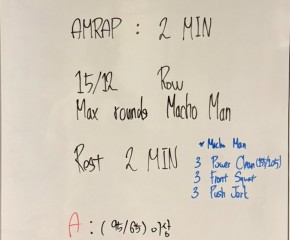 AMRAP : 2 MIN
15/12 Row
Max rounds Macho Man
Rest 2 MIN
* Macho Man
3 Power Clean (155/105)
3 Front Squat
3 Push Jerk
A : (95/65) 이상